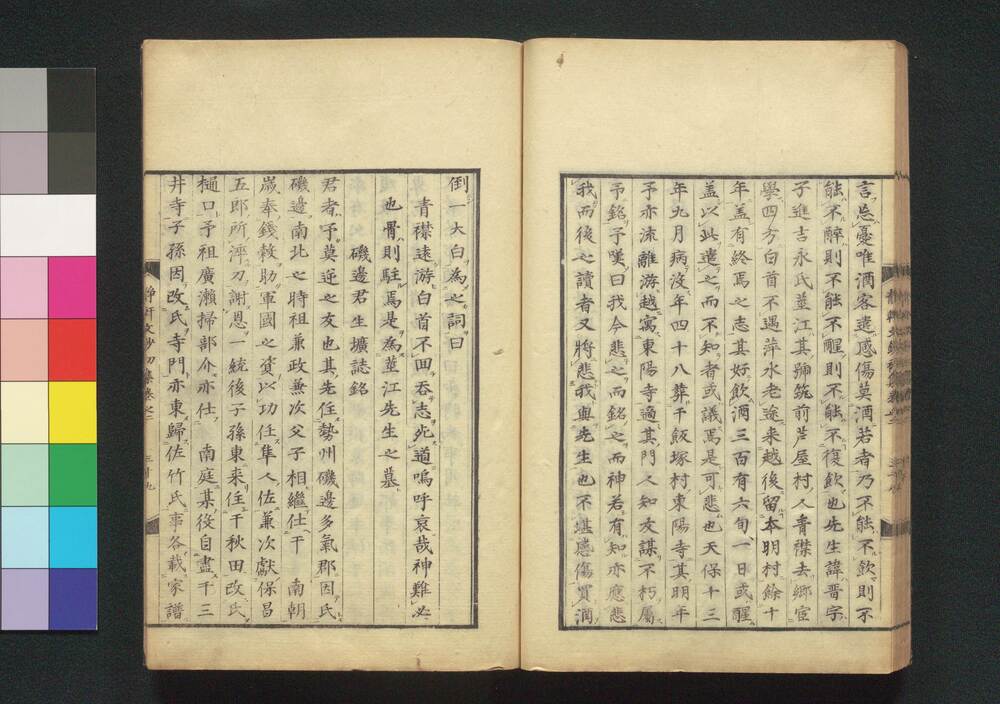 言忘憂唯酒客遣感傷莫酒若者乃不能不飲則不
能不醉則不能不醒則不能不復飲也先生諱晋字
子進吉永氏菫江其號筑前芦屋村人青襟去鄉宦
學四方白首不遇萍水老途来越後留本明村餘十
年蓋有終焉之志其好飲酒三百有六旬一日或醒
蓋以此遣之而不知者或議焉是可悲也天保十三
年九月病没年四十八葬干飯塚村東陽寺其明年
予亦流離游越寓東陽寺適其門人知友謀不朽屬
予銘予嘆曰我今悲之而銘之而神若有知亦應悲
我而後之讀者又將悲我與先生也不堪感傷買酒
倒一大白為之詞曰
青襟遠游白首不回吞志死道嗚呼哀哉神難必
也骨則駐焉是為菫江先生之墓
磯邊君生壙誌銘
君者予莫逆之友也其先住勢州磯邊多氣郡因氏
磯邊南北之時祖兼政兼次父子相繼仕干 南朝
歲奉錢穀助軍國之資以功任隼人佐兼次獻保昌
五郎所淬刀謝恩一統後子孫東来住干秋田改氏
樋口予祖廣瀬掃部介亦仕 南庭某役自盡干三
井寺子孫因改氏寺門亦東歸佐竹氏事各載家譜
静軒文鈔初集巻之二
三十九